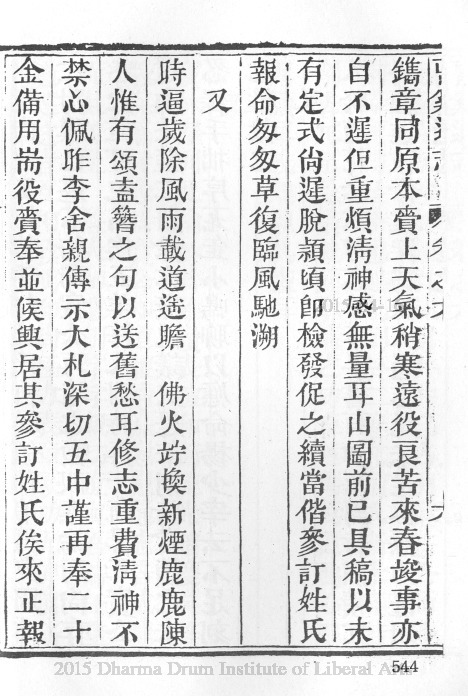 鐫章同原本賫上天氣稍寒遠役良苦來春竣事亦
自不遲但重煩清神感無量耳山圖前已具稿以未
有定式尚遲脫頴頃卽檢發促之續當偕參訂姓氏
報命匆匆草復臨風馳溯
又
時逼歲除風雨載道遥瞻　佛火竚換新煙鹿鹿陳
人惟有頌盍簪之句以送舊愁耳修志重費清神不
禁心佩昨李舍親傳示大札深切五中謹再奉二十
金備用耑役賫奉並候興居其參訂姓氏俟來正報
544
2015 Dharma Drum Institute of Liberal Arts